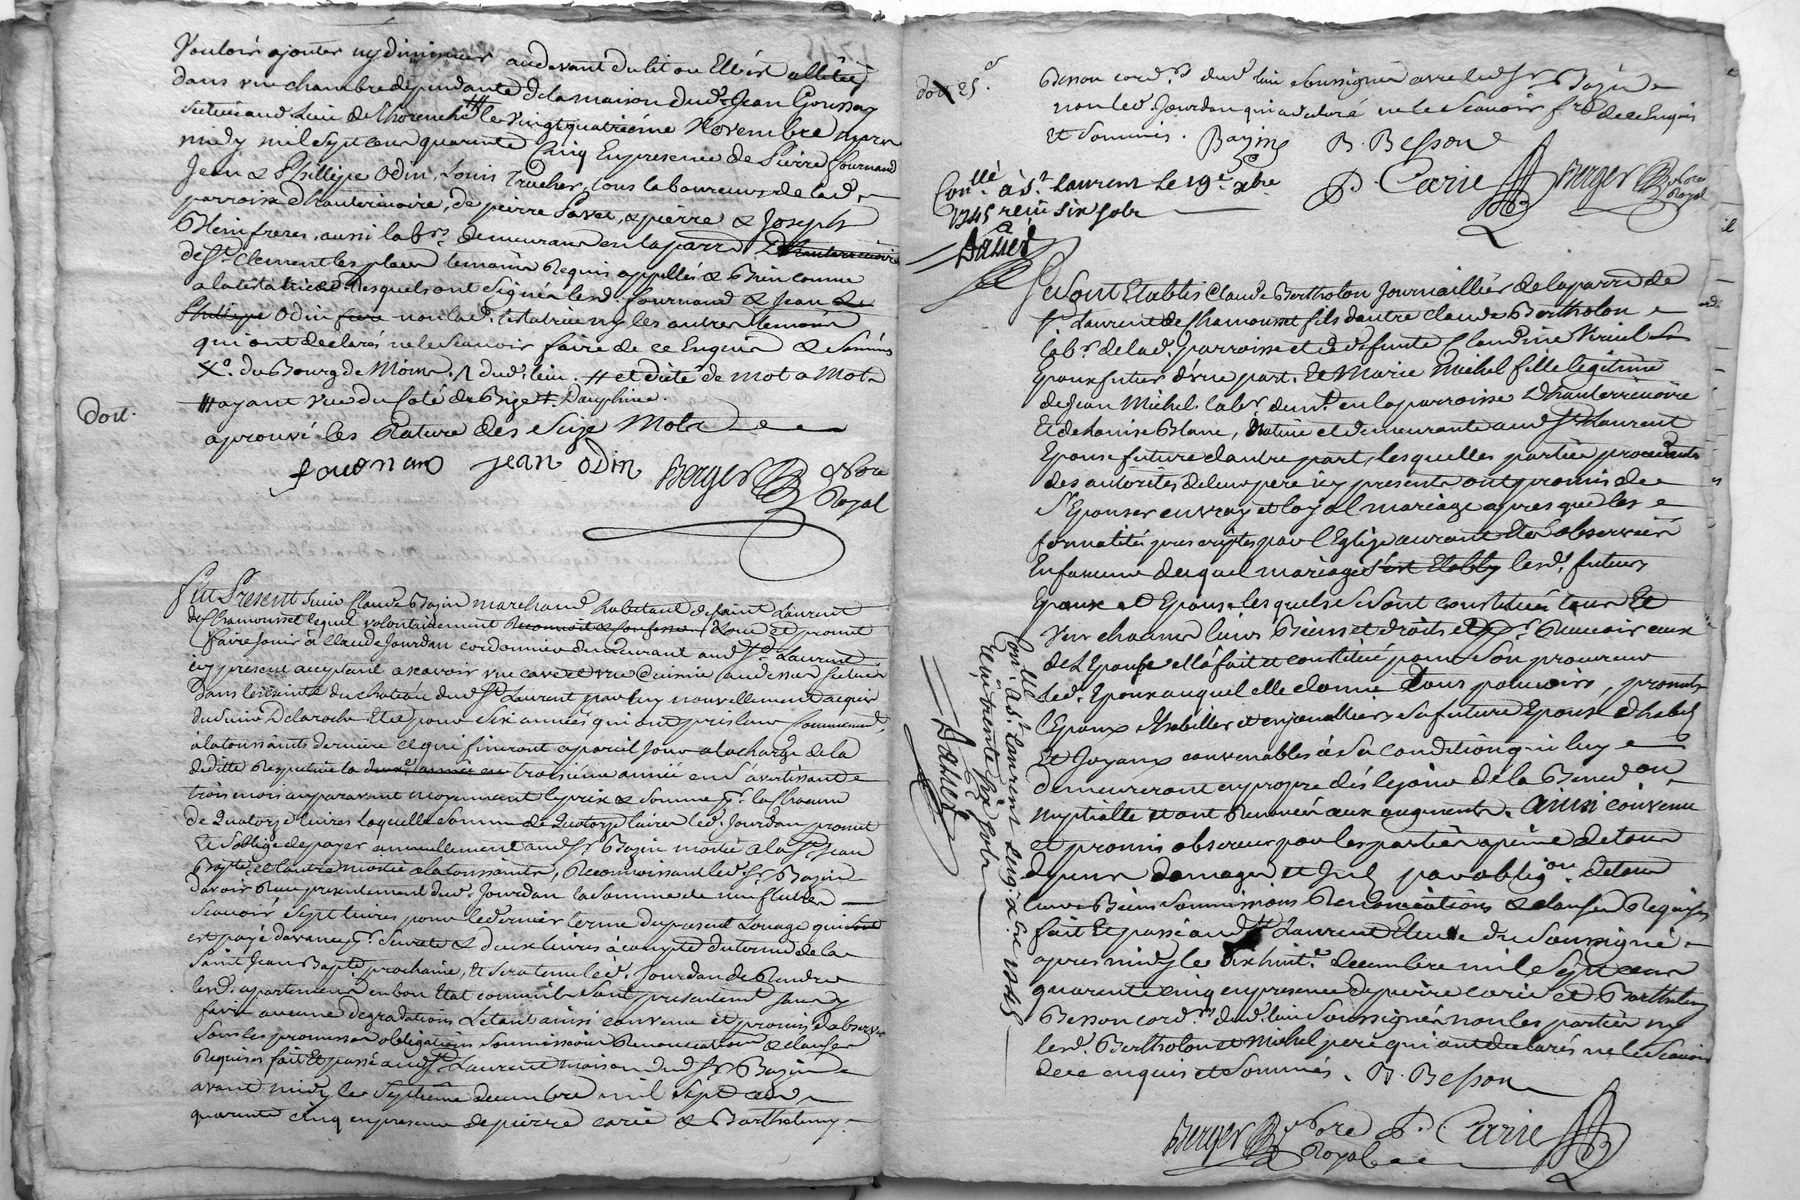 Vouloir ajouter ny diminuer audevant du lit ou Elle est allitée
dans une chambre dépendante de la maison dud. Jean Goussay
scituée aud. lieu de /// le vingt quatrième Novembre
midy mil sept cens quarante Cinq En presence de Pierre fournand
Jean & Phillipe Odin, Louis Trucher, tous laboureurs de lad.
parroisse d'hauterivoire, de pierre & pierre & Joseph
freres, aussi labrs. demeurans en la parre. d'hauterivoire
de St. Clement les places temoins Requis appellés & Bien connus
a la testatrice desquels ont signé lesd. fournand & Jean &
Phillipe Odin non lad. testatrice ny les autres temoins
qui ont declarés ne le scavoir faire de ce Enquis & sommés
Xo. du Bourg de dud. lieu. # et dicté de mot a mot
### ayant vue du coté de Bize #. Dauphine.
aprouvé les Rature des Seize Mots
Doit.
fournand jean odin Berger Nore
Royal
Fut Present Sieur Claude Bazin marchand habitant de saint Laurent
de Chamousset lequel volontairement Reconnoit & confesse / Loue et promet
faire jouir a Claude Jourdan cordonnier demeurant aud. St. Laurent
icy present acceptant a scavoir une cave et une cuisine au dessus scituée
dans l'enceinte du chateau dud. St. Laurent par luy nouvellement acquis
du Sieur Delaroche Et ce pour six années qui ont pris leur commencemt.
a la toussaints derniere et qui finiront a pareil jour a la charge de la
deditte Respective la deuxe. année en troisieme année en S'avertissant
trois mois auparavant moyennant le prix & somme pr. chacune
de quatorze livres laquelle somme de Quatorze livres led. Jourdan promet
Et S'oblige de payer annuellement aud. Sr. Bazin moitié a la St. Jean
Bapte. et l'autre moitié a la toussaints, Reconnoissant led. Sr. Bazin
d'avoir Reçu presentement dud. Jourdan la somme de neuf livres
Scavoir sept livres pour le dernier terme du present Louage qui
est payé d'avance pr. Sureté & deux livres à compte du terme de la
Saint Jean Bapte. prochaine, Et sera tenu led. Jourdan de Rendre
lesd. apartemens en bon Etat comme ils sont presentement sans y
faire aucune degradations L'etant ainsi convenu et promis d'observer
Sous les promesses obligations Soumissions Renonciations & clauses
Requises fait Et passé aud. St. Laurent maison dud. Sr. Bazin
avant midy le Septième decembre mil Sept cens
quarante cinq en presence de pierre carié & Barthelemy
Doit 25 s.
Besson cordrs. dud. lieu soussignés avec led. Sr. Bazin
non led. Jourdan qui a declaré ne le scavoir fre. de ce Enquis
Et Sommés. Bazin B. Besson
P. Carrie Berger Nore
Royal
Conllé. à St. Laurent le 19e. xbre
1745 reçu six sols
Ici Sont Etablis Claude Bertholon Journaillier de la parre. de
St. Laurent de Chamousset fils d'autre Claude Bertholon
labr. de lad. parroisse et de deffunte Claudine
Epoux futur d'une part. Et Marie Michel fille legitime
de Jean Michel labr. demt. en la parroisse D'hauterivoire
Et de Louise Blanc, Native et demeurante aud. St. Laurent
Epouse future d'autre part, lesquelles parties procedantes
des autorités de leur pere icy presents ont promis de
S'Epouser en vray et loyal mariage apres que les
formalités prescriptes par l'Eglize auront Eté observées
En faveur duquel mariage s'est Etably lesd. futurs
Epoux et Epouse lesquels se Sont constitués tous Et
uns chacuns leurs Biens et droits et pr. Recevoir ceux
de L'Epouse elle a fait et constitué pour Son procureur
led. Epoux auquel elle donne tous pouvoirs, promet
l'Epoux d'habiller et enjouailler sa future Epouse d'habits
Et Joyaux convenables à Sa condition qui luy
demeureront en propre dès le jour de la Benedon.
nuptialle et ont Renoncé aux augments. Ainsi convenu
et promis observer par les parties a peine de tous
depens domages et Int. par obligon. de tous
leurs Biens Soumissions Renonciations & clauses Requises
fait Et passé aud. St. Laurent Etude du Soussigné
apres midy le dix huit. Decembre mil Sept cens
quarante cinq en presence de pierre carié et Barthelemy
Besson cordrs. dud. lieu Soussignés non les parties ny
lesd. Bertholon et Michel pere qui ont declarés ne le Scavoir
de ce enquis et Sommés. B. Besson
Berger Nore P. Carrie
Royal
Conllé. à St. Laurent 1745
reçu trente six sols